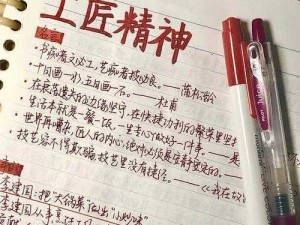 工匠精神
名言
·书痴者文必工,艺痴者技必良。——蒲松龄
·十日画一水,五日画一石。——杜甫
·在
·生活本就是一餐一饭,一生专心做好一件事。——是
·世界再嘈杂,匠人的内心绝对必须是安静安定的。——
·技艺容不得欺骗,技艺里没有捷径。——《我在故
李建国:把"大锅菜"做出"小炒味"
李建国从事烹饪